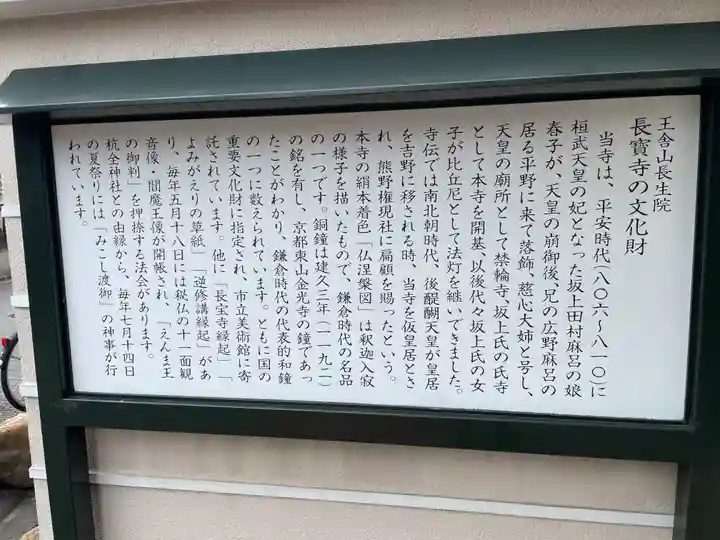 王舎山長生院
長寳寺の文化財
当寺は、平安時代(八〇六〜八一〇)に
桓武天皇の妃となった坂上田村麻呂の娘
春子が、天皇の崩御後、兄の広野麻呂の
居る平野に来て落飾、慈心大姉と号し、
天皇の廟所として禁輪寺、坂上氏の氏寺
として本寺を開基、以後代々坂上氏の女
子が比丘尼として法灯を継いできました。
寺伝では南北朝時代、後醍醐天皇が皇居
を吉野に移される時、当寺を仮皇居とさ
れ、熊野権現社に扁額を賜ったという。
本寺の絹本着色「仏涅槃図」は釈迦入寂
の様子を描いたもので、鎌倉時代の名品
の一つです。銅鐘は建久三年(一一九二)
の銘を有し、京都東山金光寺の鐘であっ
たことがわかり、鎌倉時代の代表的和鐘
の一つに数えられています。ともに国の
重要文化財に指定され、市立美術館に寄
託されています。他に「長宝寺縁起」「
よみがえりの草紙」「逆修講縁起」があ
り、毎年五月十八日には秘仏の十一面観
音像・閻魔王像が開帳され、「えんま王
の御判」を押捺する法会があります。
杭全神社との由縁から、毎年七月十四日
の夏祭りには「みこし渡御」の神事が行
われています。